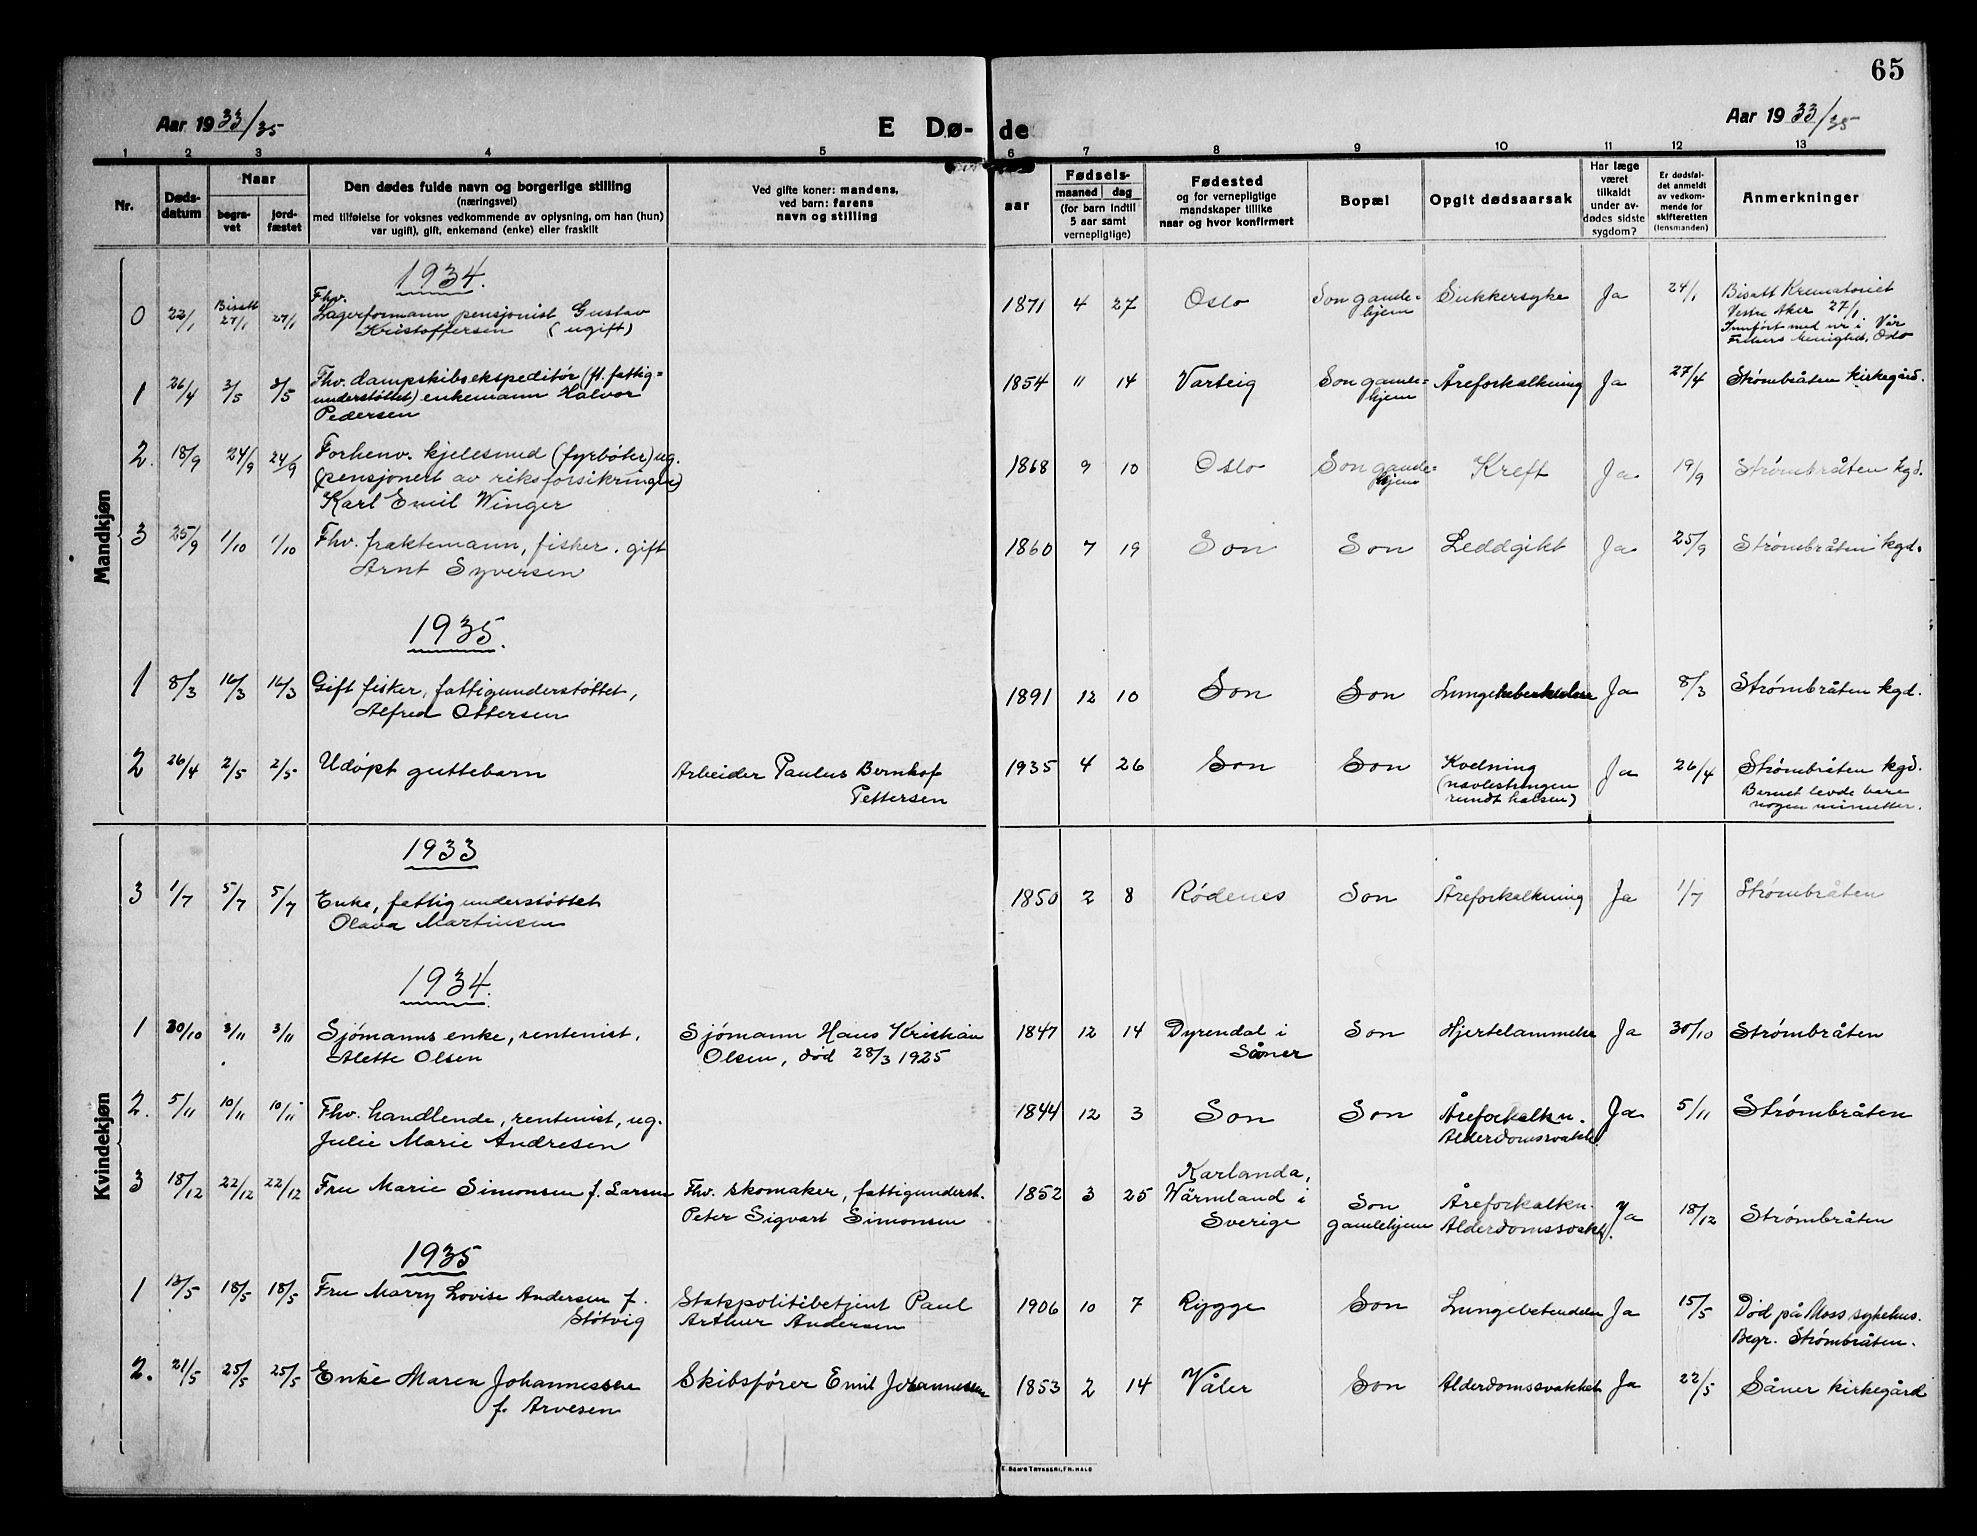 65
Aar 1933/35 E Dø-de Aar 1933/35
1 2 3 4 5 6 7 8 9 10 11 12 13
Nr.
Døds-
datum
Naar
begra-
vet
jord-
fæstet
Den dødes fulde navn og borgerlige stilling
(næringsvei)
med tilføielse for voksnes vedkommende av oplysning, om han (hun)
var ugift), gift, enkemand (enke) eller fraskilt
Ved gifte koner: mandens,
ved barn: farens
navn og stilling
aar
Fødsels-
maaned dag
(for barn indtil
5 aar samt
vernepligtige)
Fødested
og for vernepligtige
mandskaper tillike
naar og hvor konfirmert
Bopæl
Opgit dødsaarsak
Har læge
været
tilkaldt
under av-
dødes sidste
sygdom?
Er dødsfal-
det anmeldt
av vedkom-
mende for
skifteretten
(lensmanden)
Anmerkninger
Mandkjøn
1934.
0 22/1 Bisatt 27/1 27/1 Fhv. Lagerformann pensjonist Gustav
Kristoffersen (ugift)
1871 4 27 Oslo Son gamle-
hjem Sukkersyke Ja 24/1 Bisatt Krematoriet
Vestre Aker 27/1.
Innført med nr i Vår
Frelsers Menighed, Oslo
1 26/4 3/5 3/5 Fhv. dampskibsekspeditør (fl. fattig=
understøttet) enkemann Halvor
Pedersen
1854 11 14 Varteig Son gamle-
hjem Åreforkalkning Ja 27/4 Strømbråten kirkegård.
2. 18/9 24/9 24/9 Forhenv. kjelesmed (fyrbøter) ug.
(pensjonert av riksforsikringen)
Karl Emil Winger
1868 9 10 Oslo Son gamle-
hjem Kreft Ja 19/9 Strømbråten kgd.
3 25/9 1/10 1/10 Fhv. fraktemann, fisker. gift
Arnt Syversen
1860 7 19 Son Son Leddgikt Ja 25/9 Strømbråten kgd.
1935.
1 8/3 16/3 16/3 Gift fisker, fattigunderstøttet,
Alfred Ottersen
1891 12 10 Son Son Lungetuberkulose Ja 8/3 Strømbråten kgd.
2 26/4 2/5 2/5 Udøpt guttebarn Arbeider Paulus Bernhof
Pettersen
1935 4 26 Son Son Kvelning
(navlestrengen
rundt halsen) Ja 26/4 Strømbråten kgd.
Barnet levde bare
nogen minutter.
Kvindekjøn
1933
3 1/7 5/7 5/7 Enke, fattigunderstøttet
Olava Martinsen
1850 2 8 Rødenes Son Åreforkalkning Ja 1/7 Strømbråten
1934.
1 30/10 3/11 3/11 Sjømanns enke, rentenist,
Alette Olsen Sjømann Hans Kristian
Olsen, død 28/3 1925
1847 12 14 Dyrendal i
Såner Son Hjertelammelse Ja 30/10 Strømbråten
2. 5/11 10/11 10/11 Fhv. handlende, rentenist, ug.
Julie Marie Andresen
1844 12 3 Son Son Åreforkalkn.
Alderdomssvakh. Ja 5/11 Strømbråten
3 18/12 22/12 22/12 Fru Marie Simonsen f. Larsen Fhv. skomaker, fattigunderst.
Peter Sigvart Simonsen
1852 3 25 Karlanda,
Wärmland i
Sverige Son
gamlehjem Åreforkalkn.
Alderdomssvakh. Ja 18/12 Strømbråten
1935
1 13/5 18/5 18/5 Fru Marry Lovise Andersen f.
Støtvig Statspolitibetjent Paul
Arthur Andersen
1906 10 7 Rygge Son Lungebetendelse Ja 15/5 Død på Moss sykehus.
Begr. Strømbråten.
2. 21/5 25/5 25/5 Enke Maren Johannessen
f. Arvesen Skibsfører Emil Johannessen
1853 2 14 Våler Son Alderdomssvakhet Ja 22/5 Såner kirkegård
E. Sem's Trykkeri, Fr.hald